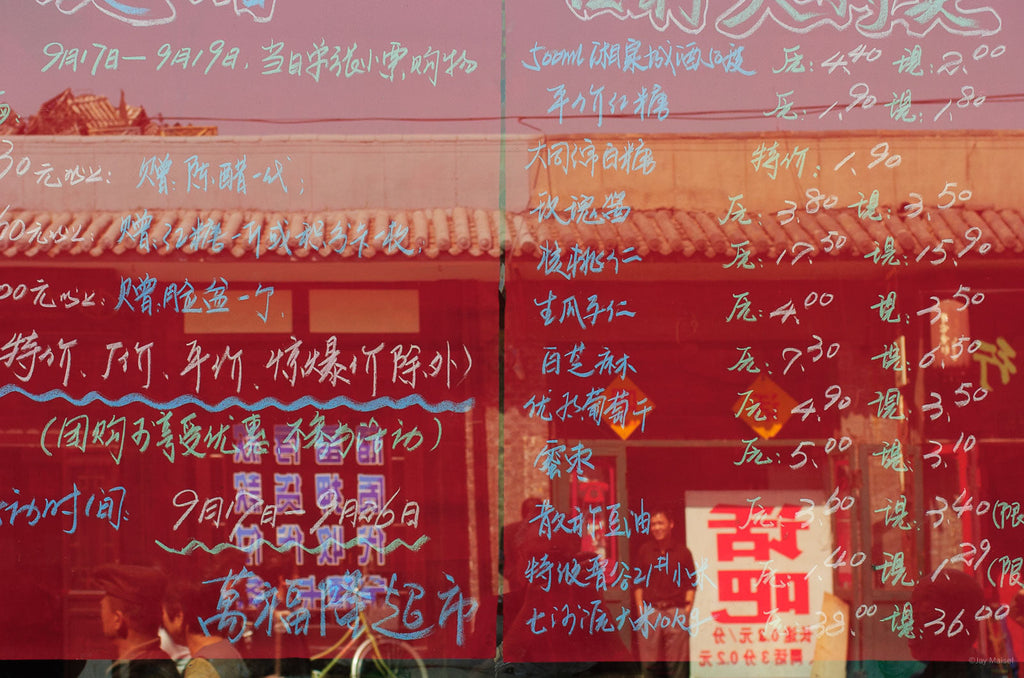 9月17日—9月19日,当日单张小票购物
30元以上:赠陈醋一代;
60元以上:赠红糖一斤或积分卡一枚;
00元以上:赠脸盆一个,
特价、厂价、平价、惊爆价除外)
(团购不享受优惠 不参加活动)
动时间:9月17日—9月26日
萬福隆超市
500ml 原:4.40 现:2.00
平价红糖 原:1.90 现:1.80
大同绵白糖 特价:1.90
玫瑰酱 原:3.80 现:3.50
核桃仁 原:17.50 现:15.90
生瓜子仁 原:4.00 现:3.50
白芝麻 原:7.30 现:6.50
优级葡萄干 原:4.90 现:3.50
蜜枣 原:5.00 现:3.10
散称豆油 原:3.60 现:3.40(限
特级晋谷21#小米 原:1.40 现:1.29(限
七河源大米10公斤 原:38.00 现:36.00
话吧
长话0.2元/分
网话3分0.2元
©Jay Maisel